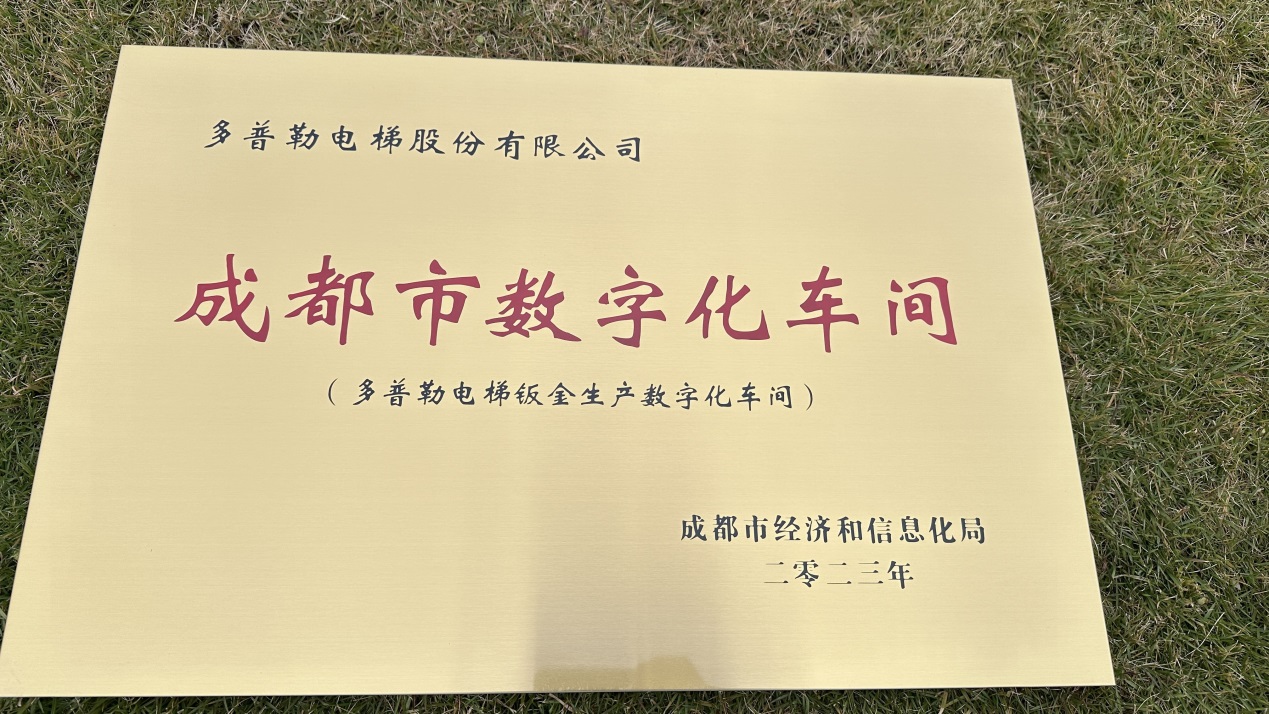 多普勒电梯股份有限公司
成都市数字化车间
（多普勒电梯钣金生产数字化车间）
成都市经济和信息化局
二零二三年